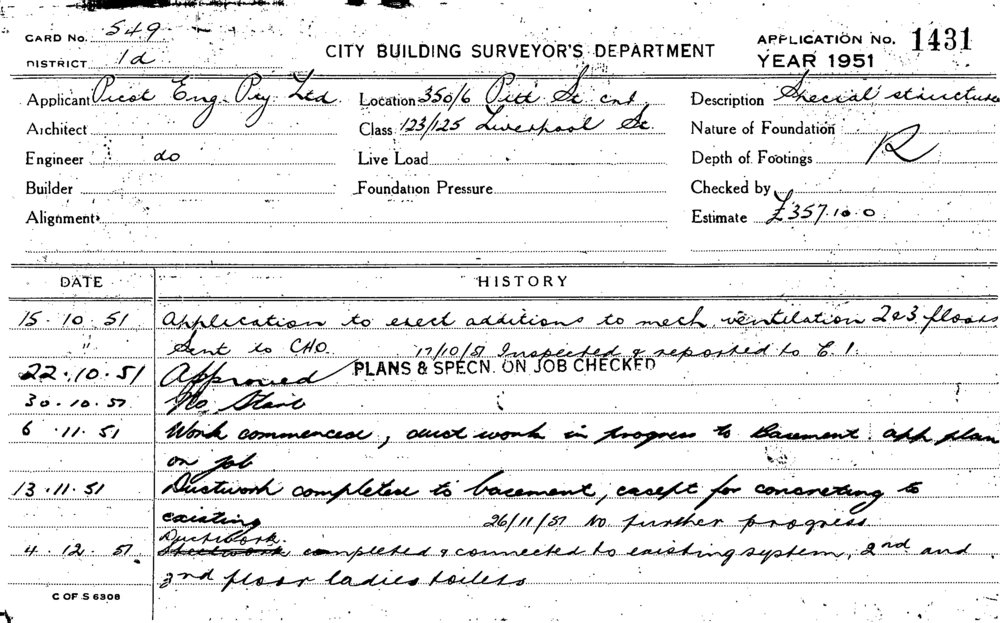 CARD No. 549
DISTRICT 1d
CITY BUILDING SURVEYOR'S DEPARTMENT
APPLICATION No. 1431
YEAR 1951
Applicant Picot Eng. Pty Ltd.
Location 350/6 Pitt St cnr
Description Special structure
Architect
Class 123/125 Liverpool St.
Nature of Foundation R
Engineer do
Live Load
Depth of Footings
Builder
Foundation Pressure
Checked by
Alignment
Estimate £357.10.0
DATE HISTORY
15.10.51 Application to erect additions to mech. ventilation 2 & 3 floors
" Sent to CHO. 17/10/51 Inspected & reported to C.I.
22.10.51 Approved PLANS & SPECN. ON JOB CHECKED
30.10.51 No Start
6.11.51 Work commenced, duct work in progress to Basement. app. plan
on job
13.11.51 Ductwork completed to basement, except for concreting to
existing 26/11/51 No further progress
Ductwork.
4.12.51 completed & connected to existing system, 2nd and
3rd floor ladies toilets
C OF S 6308